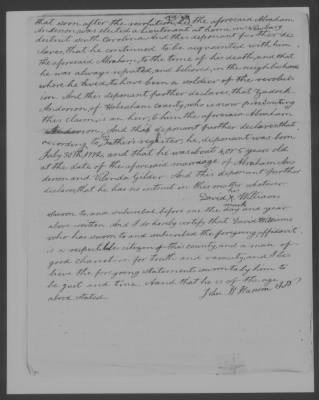 that soon after the revolution, he the aforesaid Abraham
Anderson, was elected a Lieutenant at home, in Newbury
district South Carolina. And this deponant further de-
clares, that he continued to be acquainted with him
the aforesaid Abraham, to the time of his death, and that
he was always reputed, and believed, in the neighborhood
where he lived to have been a soldier of the revolut-
ion. And this deponant further declares, that Zadock
Anderson, of Habersham County, who is now prosecuting
this claim, is an heir, to him the aforesaid Abraham
Anderson. And this deponant further declares that,
according to his Father's register, he, deponant was born
July 30th 177 and that he was about years old
at the date of the aforesaid marriage of Abraham An-
derson and Gilder And this deponant further
declares, that he has no interest in this matter whatever.
his
David X Williams
mark
Sworn to, and subscribed before me the day and year
above written. And I do hereby certify that David Williams
who has sworn to and subscribed the forgoing affidavit
is a reputable citizen of this county, and a man of
good character for truth and veracity, and I be
lieve the forgoing statement sworn to by him to
be just and true. And that he is of the age
above stated
John